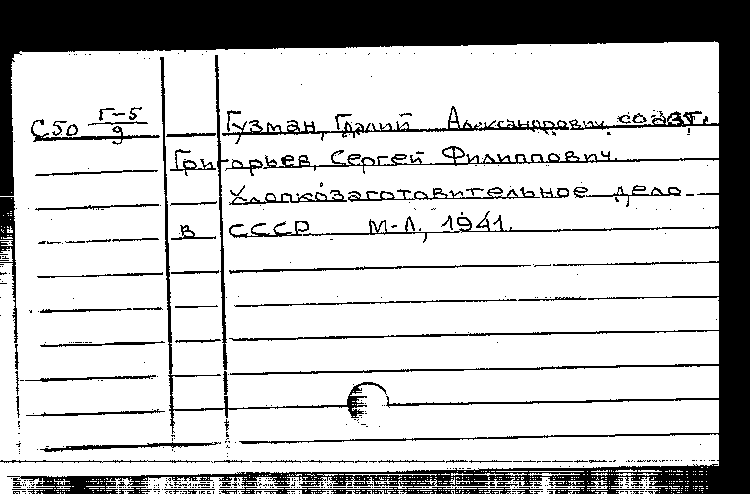 С50 Г-5/9 Гузман, Гдалий Александрович, соавт.
Григорьев, Сергей Филиппович.
Хлопкозаготовительное дело
в СССР М-Л., 1941.